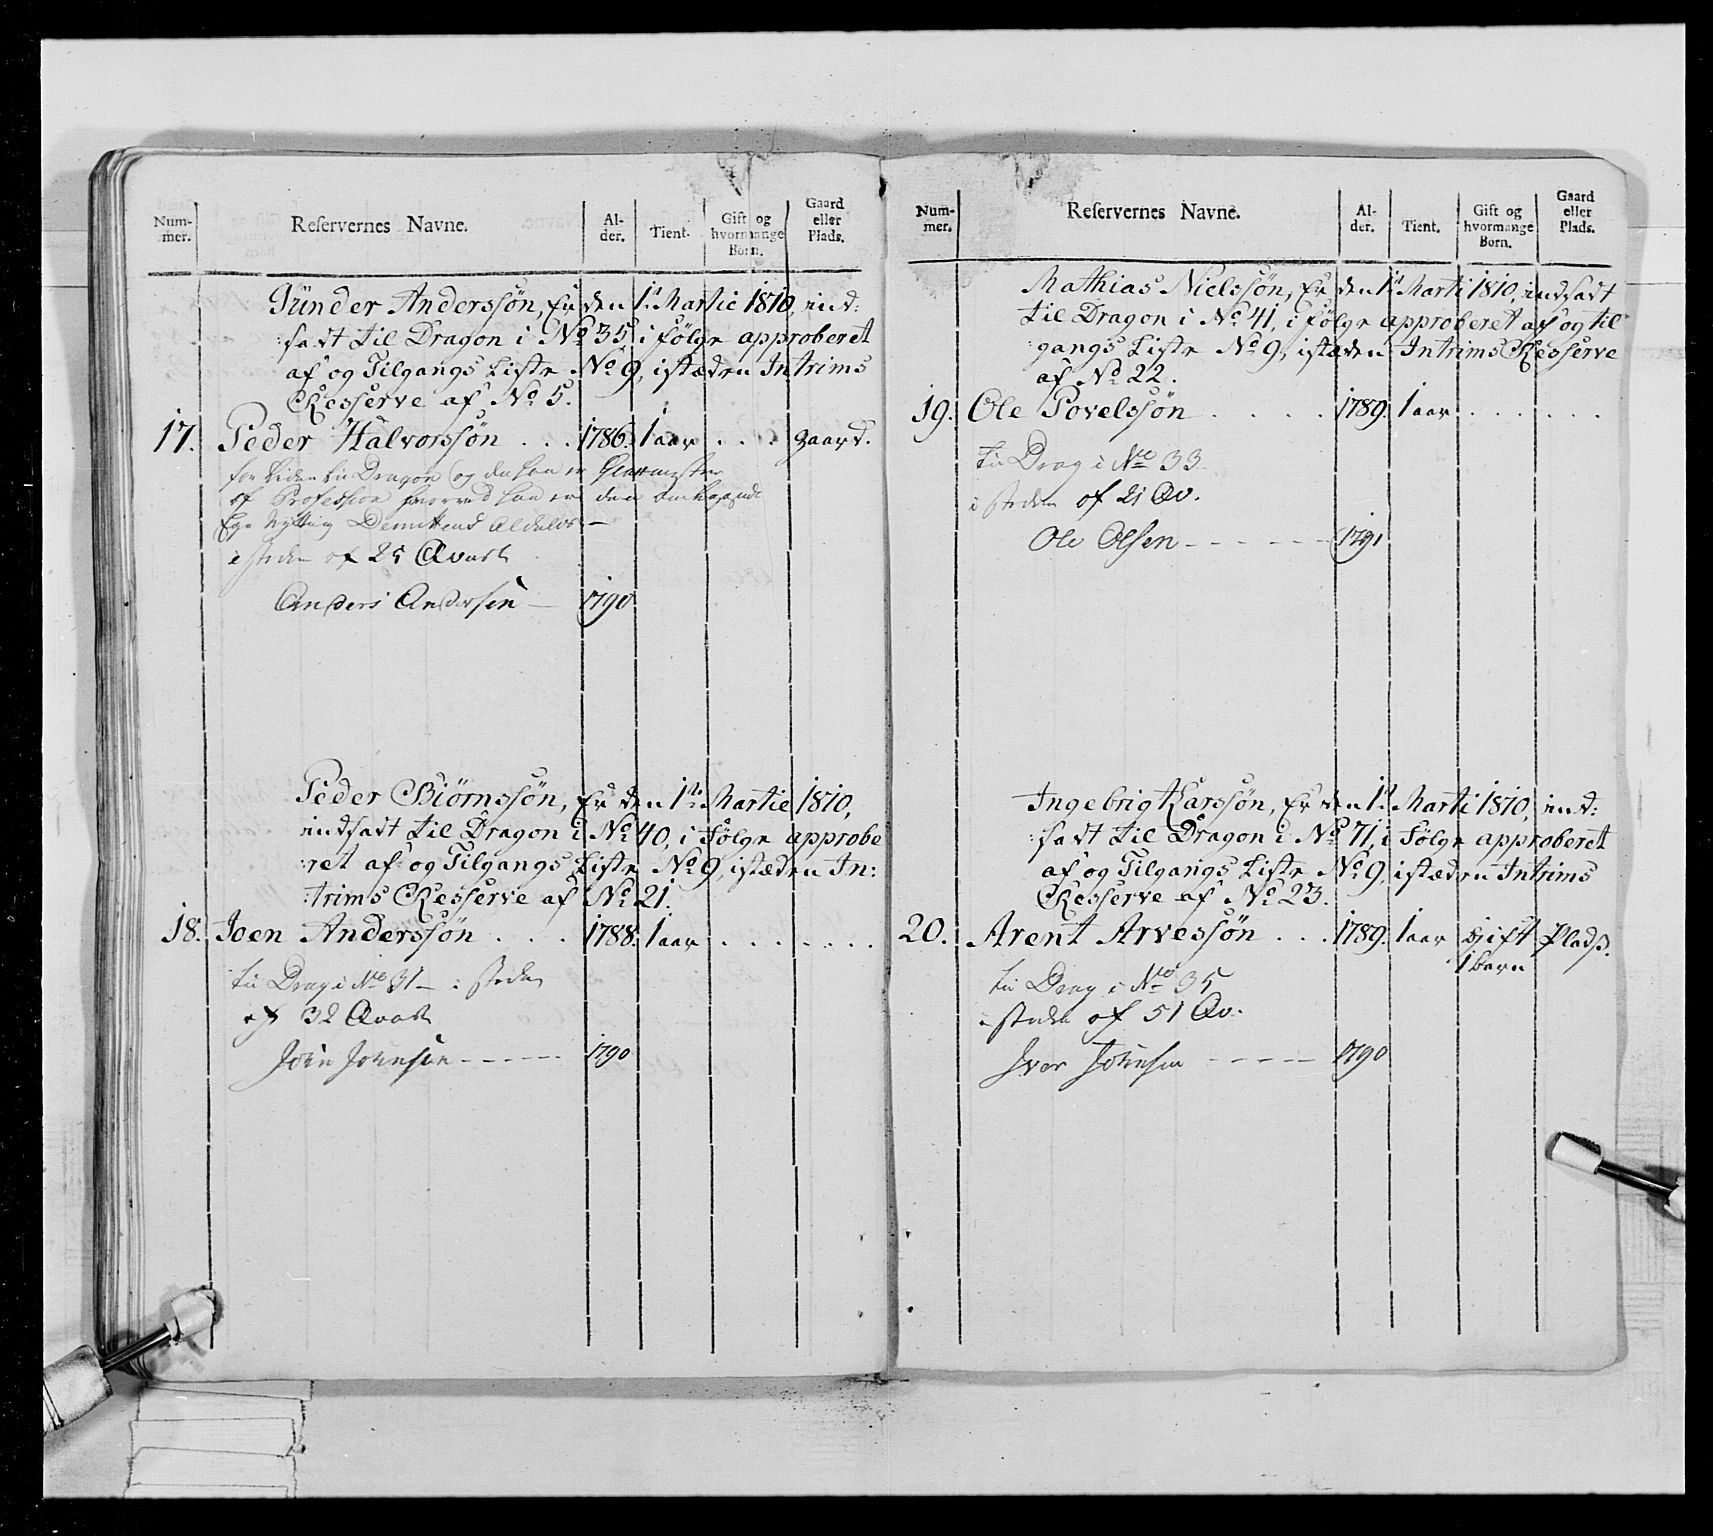 Num-
mer.
Reservernes Navne.
Al-
der.
Tient.
Gift og
hvormange
Born.
Gaard
eller
Plads.
Günder Anderssøn, Er den 1te Martie 1810, ind:
:sadt til Dragon i No 35, i følge approberet
af og Tilgangs Liste No 9, istæden Intrims
Resserve af No 5.
17. Peder Halvorssøn . . . 1786. 1 aar . . . gaard.
til Dragon og
af Profession hvorved han er
i steden af 25 Qvart
Anders Andersen — 1790
Peder Biørnssøn, Er den 1te Martie 1810,
indsadt til Dragon i No 40, i Følge approbe
:ret af og Tilgangs Liste No 9, istæden In:
:trims Resserve af No 21.
18. Joen Anderssøn . . . 1788. 1 aar . . . . . . .
til Drag i No 31 — i steden
af 32 Qvart
John Johnsen ------ 1790
Num-
mer.
Reservernes Navne.
Al-
der.
Tient.
Gift og
hvormange
Born.
Gaard
eller
Plads.
Mathias Nielssøn, Er den 1te Marti 1810, indsadt
til Dragon i No 41, i følge approberet af og til
:gangs Liste No 9, istæden Intrims Resserve
af No 22.
19. Ole Povelssøn . . . . 1789. 1 aar . . . . . . .
til Drag i No 33
i steden af 21 Qv.
Ole Olsen ------ 1791
Ingebrigt Larssøn, Er den 1te Marti 1810, ind:
:sadt til Dragon i No 71, i Følge approberet
af og Tilgangs Liste No 9, istæden Intrims
Resserve af No 23.
20. Arent Arvessøn . . . 1789. 1 aar gift Pladß.
1 barn
til Drag i No 35
i steden af 51 Qv.
Iver Johnsen ----- 1790